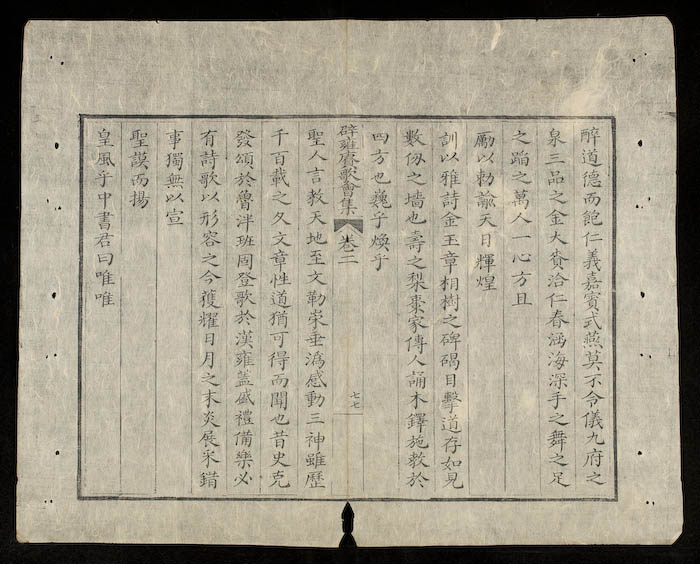 醉道德而飽仁義嘉賓式燕莫不令儀九府之
泉三品之金大賚洽仁春涵海深手之舞之足
之蹈之萬人一心方且
勵以勅諭天日輝煌
訓以雅詩金玉章相樹之碑碣目擊道存如見
數仭之墻也壽之梨棗家傳人誦木鐸施教於
四方也巍乎煥乎
辟雍賡歌會集 卷二
七七
聖人言教天地至文勒崇垂溈感動三神雖歷
千百載之久文章性道猶可得而聞也昔史克
發頌於魯泮班固登歌於漢雍蓋盛禮備樂必
有詩歌以形容之今獲耀日月之末炎展采錯
事獨無以宣
聖謨而揚
皇風乎中書君曰唯唯